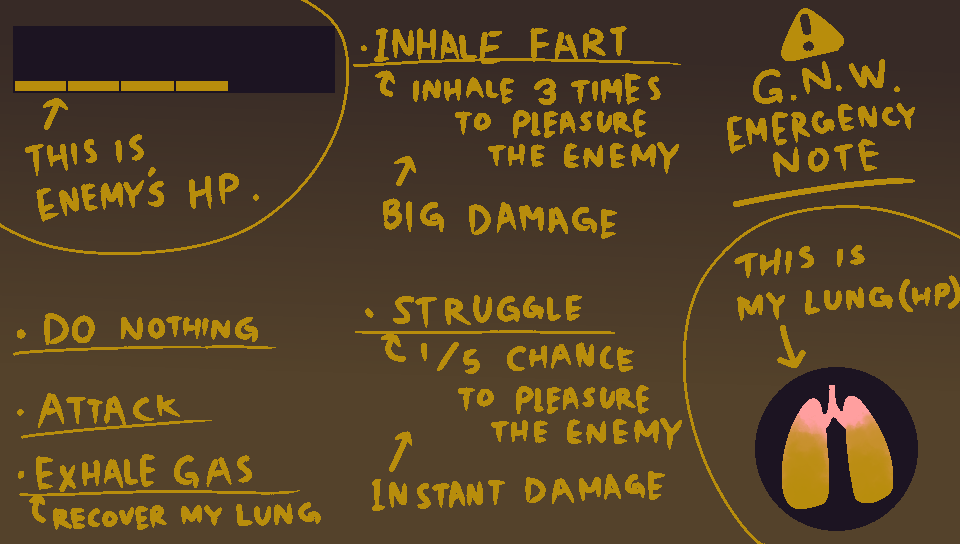 THIS IS
ENEMY'S HP.
· DO NOTHING
· ATTACK
· EXHALE GAS
RECOVER MY LUNG
· INHALE FART
INHALE 3 TIMES
TO PLEASURE
THE ENEMY
BIG DAMAGE
· STRUGGLE
1/5 CHANCE
TO PLEASURE
THE ENEMY
INSTANT DAMAGE
!
G.N.W.
EMERGENCY
NOTE
THIS IS
MY LUNG(HP)